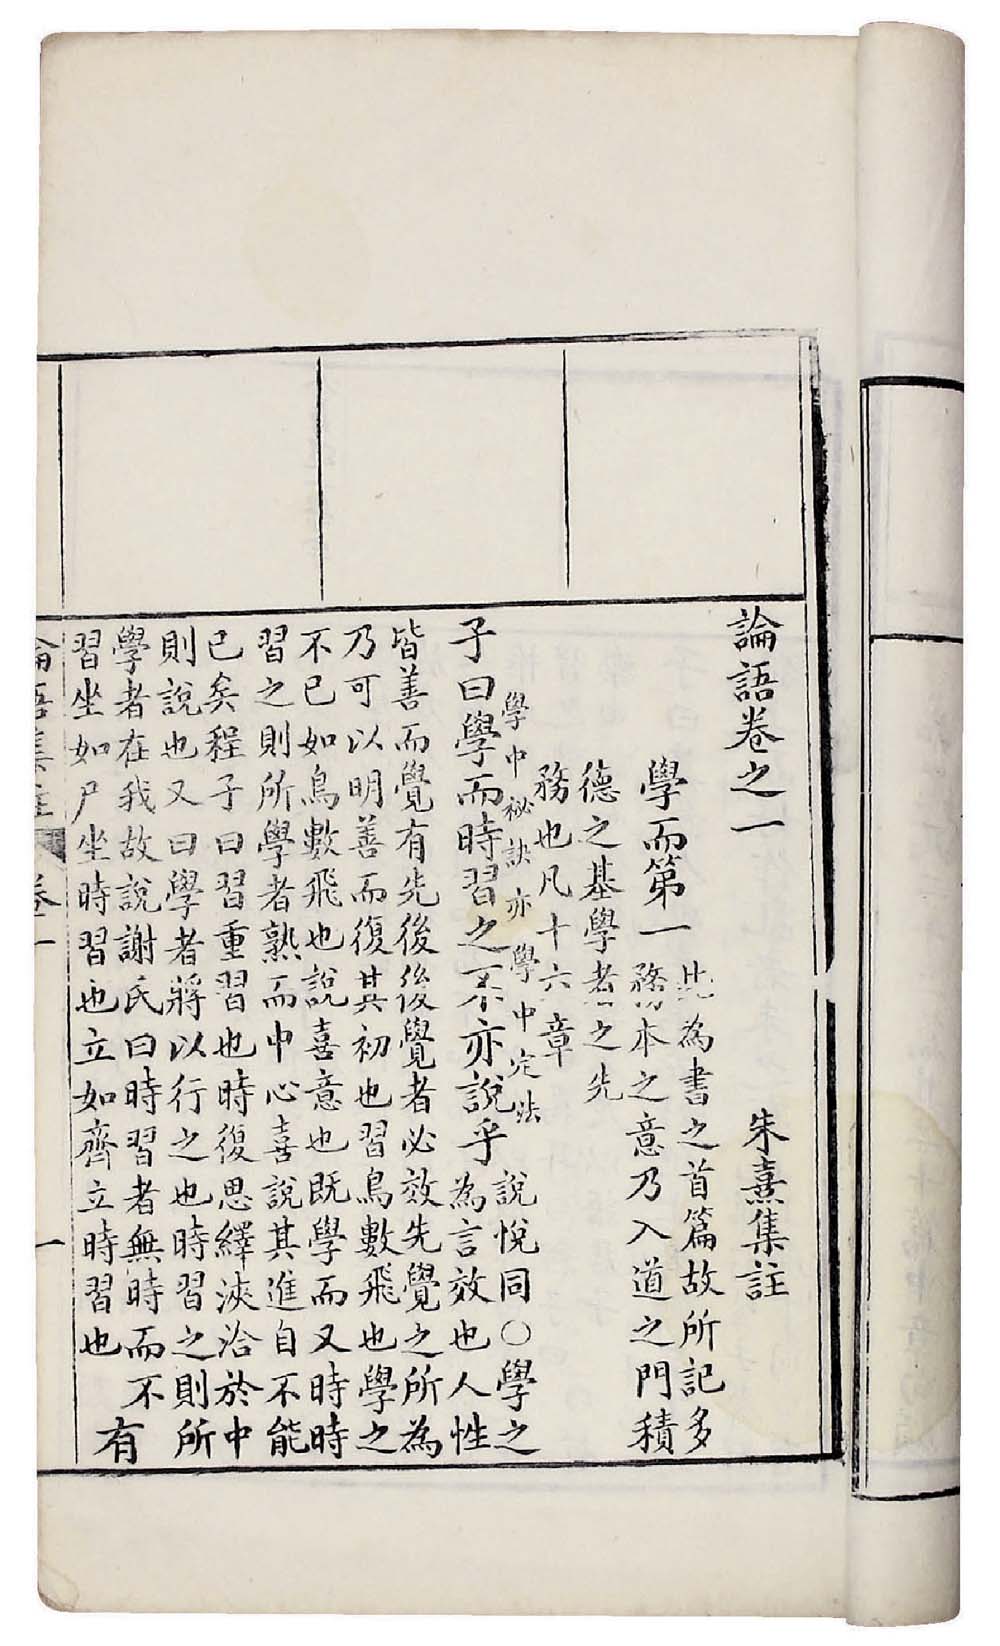 論語卷之一
朱熹集註
學而第一
此為書之首篇故所記多
務本之意乃入道之門積
德之基學者之先
務也凡十六章
學中祕訣亦學中定法
子曰學而時習之不亦說乎
說悅同○學之
為言效也人性
皆善而覺有先後後覺者必效先覺之所為
乃可以明善而復其初也習鳥數飛也學之
不已如鳥數飛也說喜意也既學而又時時
習之則所學者熟而中心喜說其進自不能
已矣程子曰習重習也時復思繹浹洽於中
則說也又曰學者將以行之也時習之則所
學者在我故說謝氏曰時習者無時而不
習坐如尸坐時習也立如齊立時習也
有
論語集註 卷一 一